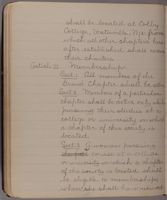 shall be located at Colby
College, Waterville, Me. from
which all other chapters here-
after established shall receive
their charters.
Article II Membership
Sect. 1 All members of the
Grand Chapter shall be active
Sect. 2 Members of a particular
chapter shall be active only while
pursuing their studies at a
college or university in which
a chapter of this society is
located.
Sect. 3 person
course at a college
or university in which a chapter
of the society is located shall
be eligible to membership,
when she shall have